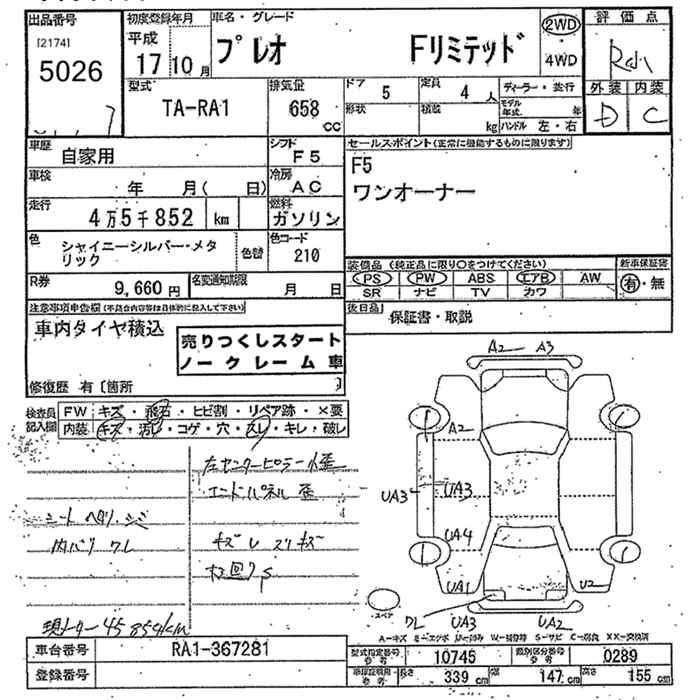 出品番号 初度登録年月 車名・グレード 2WD 評価点
[2174] 平成 プレオ Fリミテッド 4WD
5026 17 10月
型式 排気量 ドア 定員 ディーラー・並行 外装 内装
TA-RA1 658 5 4人 モデル年式 年 D C
CC 形状 積載 kg ハンドル 左・右
車歴 自家用 シフト F5 セールスポイント(正常に機能するものに限ります)
車検 年 月( 日) 冷房 AC F5
走行 4万5千852 km 燃料 ガソリン ワンオーナー
色 シャイニーシルバー・メタリック 色替 色コード 210
装備品(純正品に限り○をつけてください) 新車保証書
R券 9,660円 名変通知期限 月 日 PS PW ABS エアB AW 有・無
SR ナビ TV カワ
注意事項申告欄(不具合内容等は具体的に記入して下さい) 後日品 保証書・取説
車内タイヤ積込
売りつくしスタート
ノークレーム車
修復歴 有〔箇所 〕
検査員記入欄 FW キズ・飛石・ヒビ割・リペア跡・×要
内装 キズ・汚レ・コゲ・穴・スレ・キレ・破レ
A2 A3
A2
UA3 UA3
UA4
UA1 U2
UA3 UA2
左センターピラー小歪
エンドパネル 歪
シート ヘタリ・シミ
内バリ ワレ キズ U スリキズ
スペア
A-キズ U-凹み W-補修跡 S-サビ C-腐食 XX-交換済
車台番号 RA1-367281 型式指定番号 10745 類別区分番号 0289
登録番号 長さ 339cm 幅 147cm 高さ 155cm